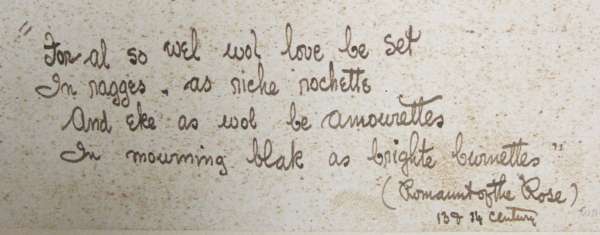 "For al so wel wol love be set
In ragges . as riche rochette
And eke as wol be amourettes
In mourning blak as brighte burnettes"
(Romaunt of the Rose)
13 & 14 century